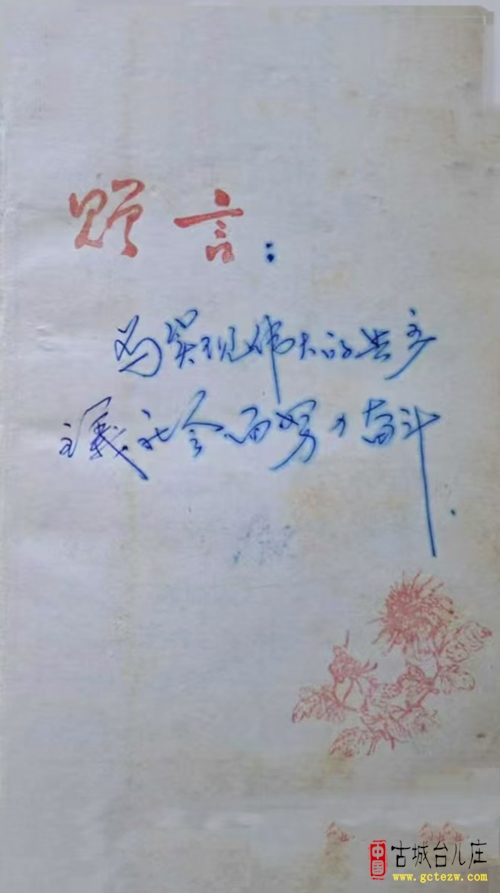 赠言:
为实现伟大的共产
主義社会而努力奋斗.
中国 古城台儿庄
www.gctezw.com